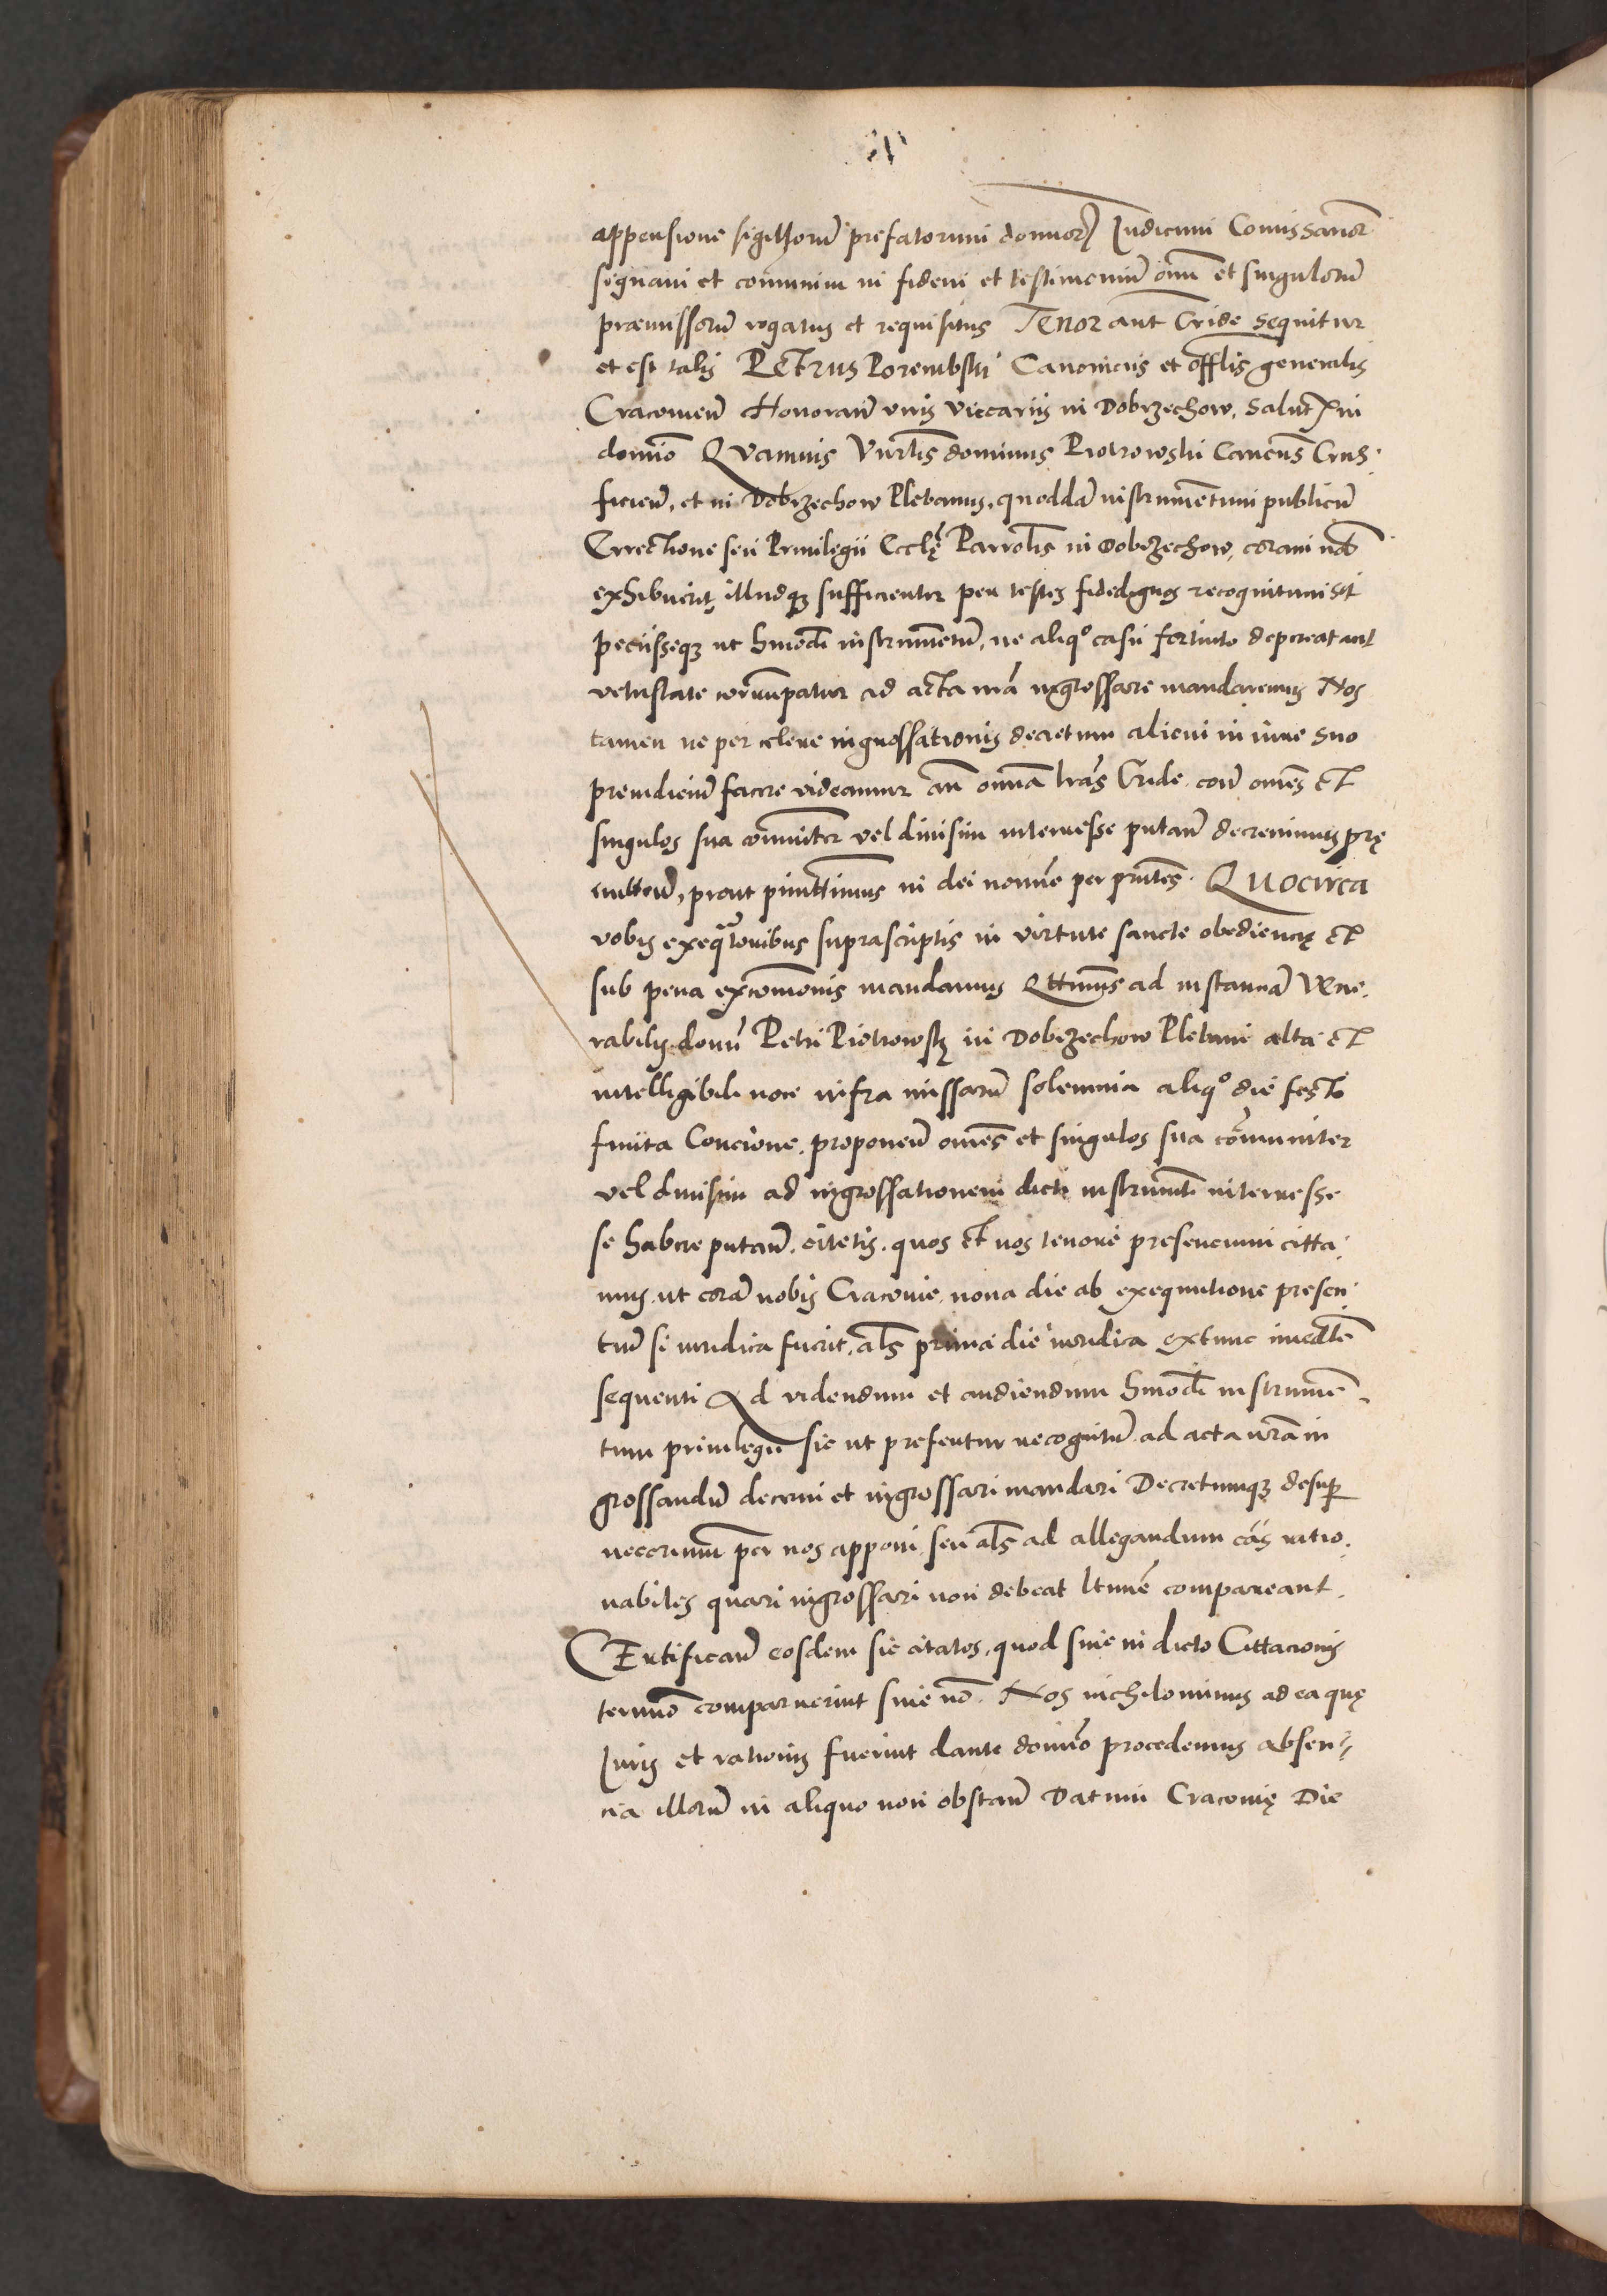 appensione sigillorũ prefatorum domnorꝝ Iudicum Comissarior̃
signavi et comunivi in fidem et testimoniũ om̃ et singulorũ
præmissorũ rogatus et requisitus Tenor aut̃ Cride sequitur
et est talis Petrus Porembski Canonicus et offlis̃ generalis
Cracovieñ Honorañ viris vicariis in Dobrzechow, Salutẽ in
domĩo Quamvis Vnrlis̃ dominus Piotrowski Canc̃us Crus.
ficieñ, et in Dobrzechow Plebanus, quoddã instrumentum publicũ
Errectione seu Privilegii Ecclę̃ Parrolis̃ in Dobrzechow, coram nob̃
exhibuerit, illudqꝫ sufficienter per testes fidedignos recognitum sit
petiisseqꝫ ut hmodi̇̃ instrumentũ, ne aliqͦ casu fortuito depereat aut
vetustate corrumpatur ad acta nr̃a ingrossare mandaremus Nos
tamen ne per celere ingrossationis decretum alicui in iure suo
preiudiciũ facere videamur añ omnia lrãs Cride. contr̃ omẽs et
singulos sua comuniter vel divisim interesse putañ decrevimus prę
mitteñ, prout p̃mittimus in dei nomĩe per pñtes. Quocirca
vobis exequutoribus suprascriptis in virtute sancte obediencię et
sub pena excomõnis mandamus Qttnus̃ ad instanciã Vene.
rabilis domĩ Petri Piotrowskị in Dobrzechow Plebani alta et
intelligibili voce infra missarũ solemnia aliqͦ die festo
finita Concione, proponeñ omẽs et singulos sua cõmuniter
vel divisim ad ingrossationem dicti instrumti̇̃ interesse
se habere putañ. citetis. quos et nos tenore presencium citta.
mus. ut corã nobis Cracovie, nona die ab exequutione presen.
tiũ si iuridica fuerit, als̃ prima die iuridica extunc imedte̊
sequenti Ad videndum et audiendum hmodi̇̃ instrumen.
tum privilegii sic ut prefertur recognitũ ad acta nrã in
grossandũ decerni et ingrossari mandari Decretumqꝫ desuꝑ
necessarium per nos apponi, seu als̃ ad allegandum cãs ratio.
nabiles quare ingrossari non debeat ltimẽ compareant.
Certificañ eosdem sic citatos, quod sive in dicto Cittacionis
termĩo comparuerint sive nõ. Nos nichilominus ad ea quę
Iuris et rationis fuerint dante domĩo procedemus absen-
cia illorũ in aliquo non obstañ Datum Cracovię Die